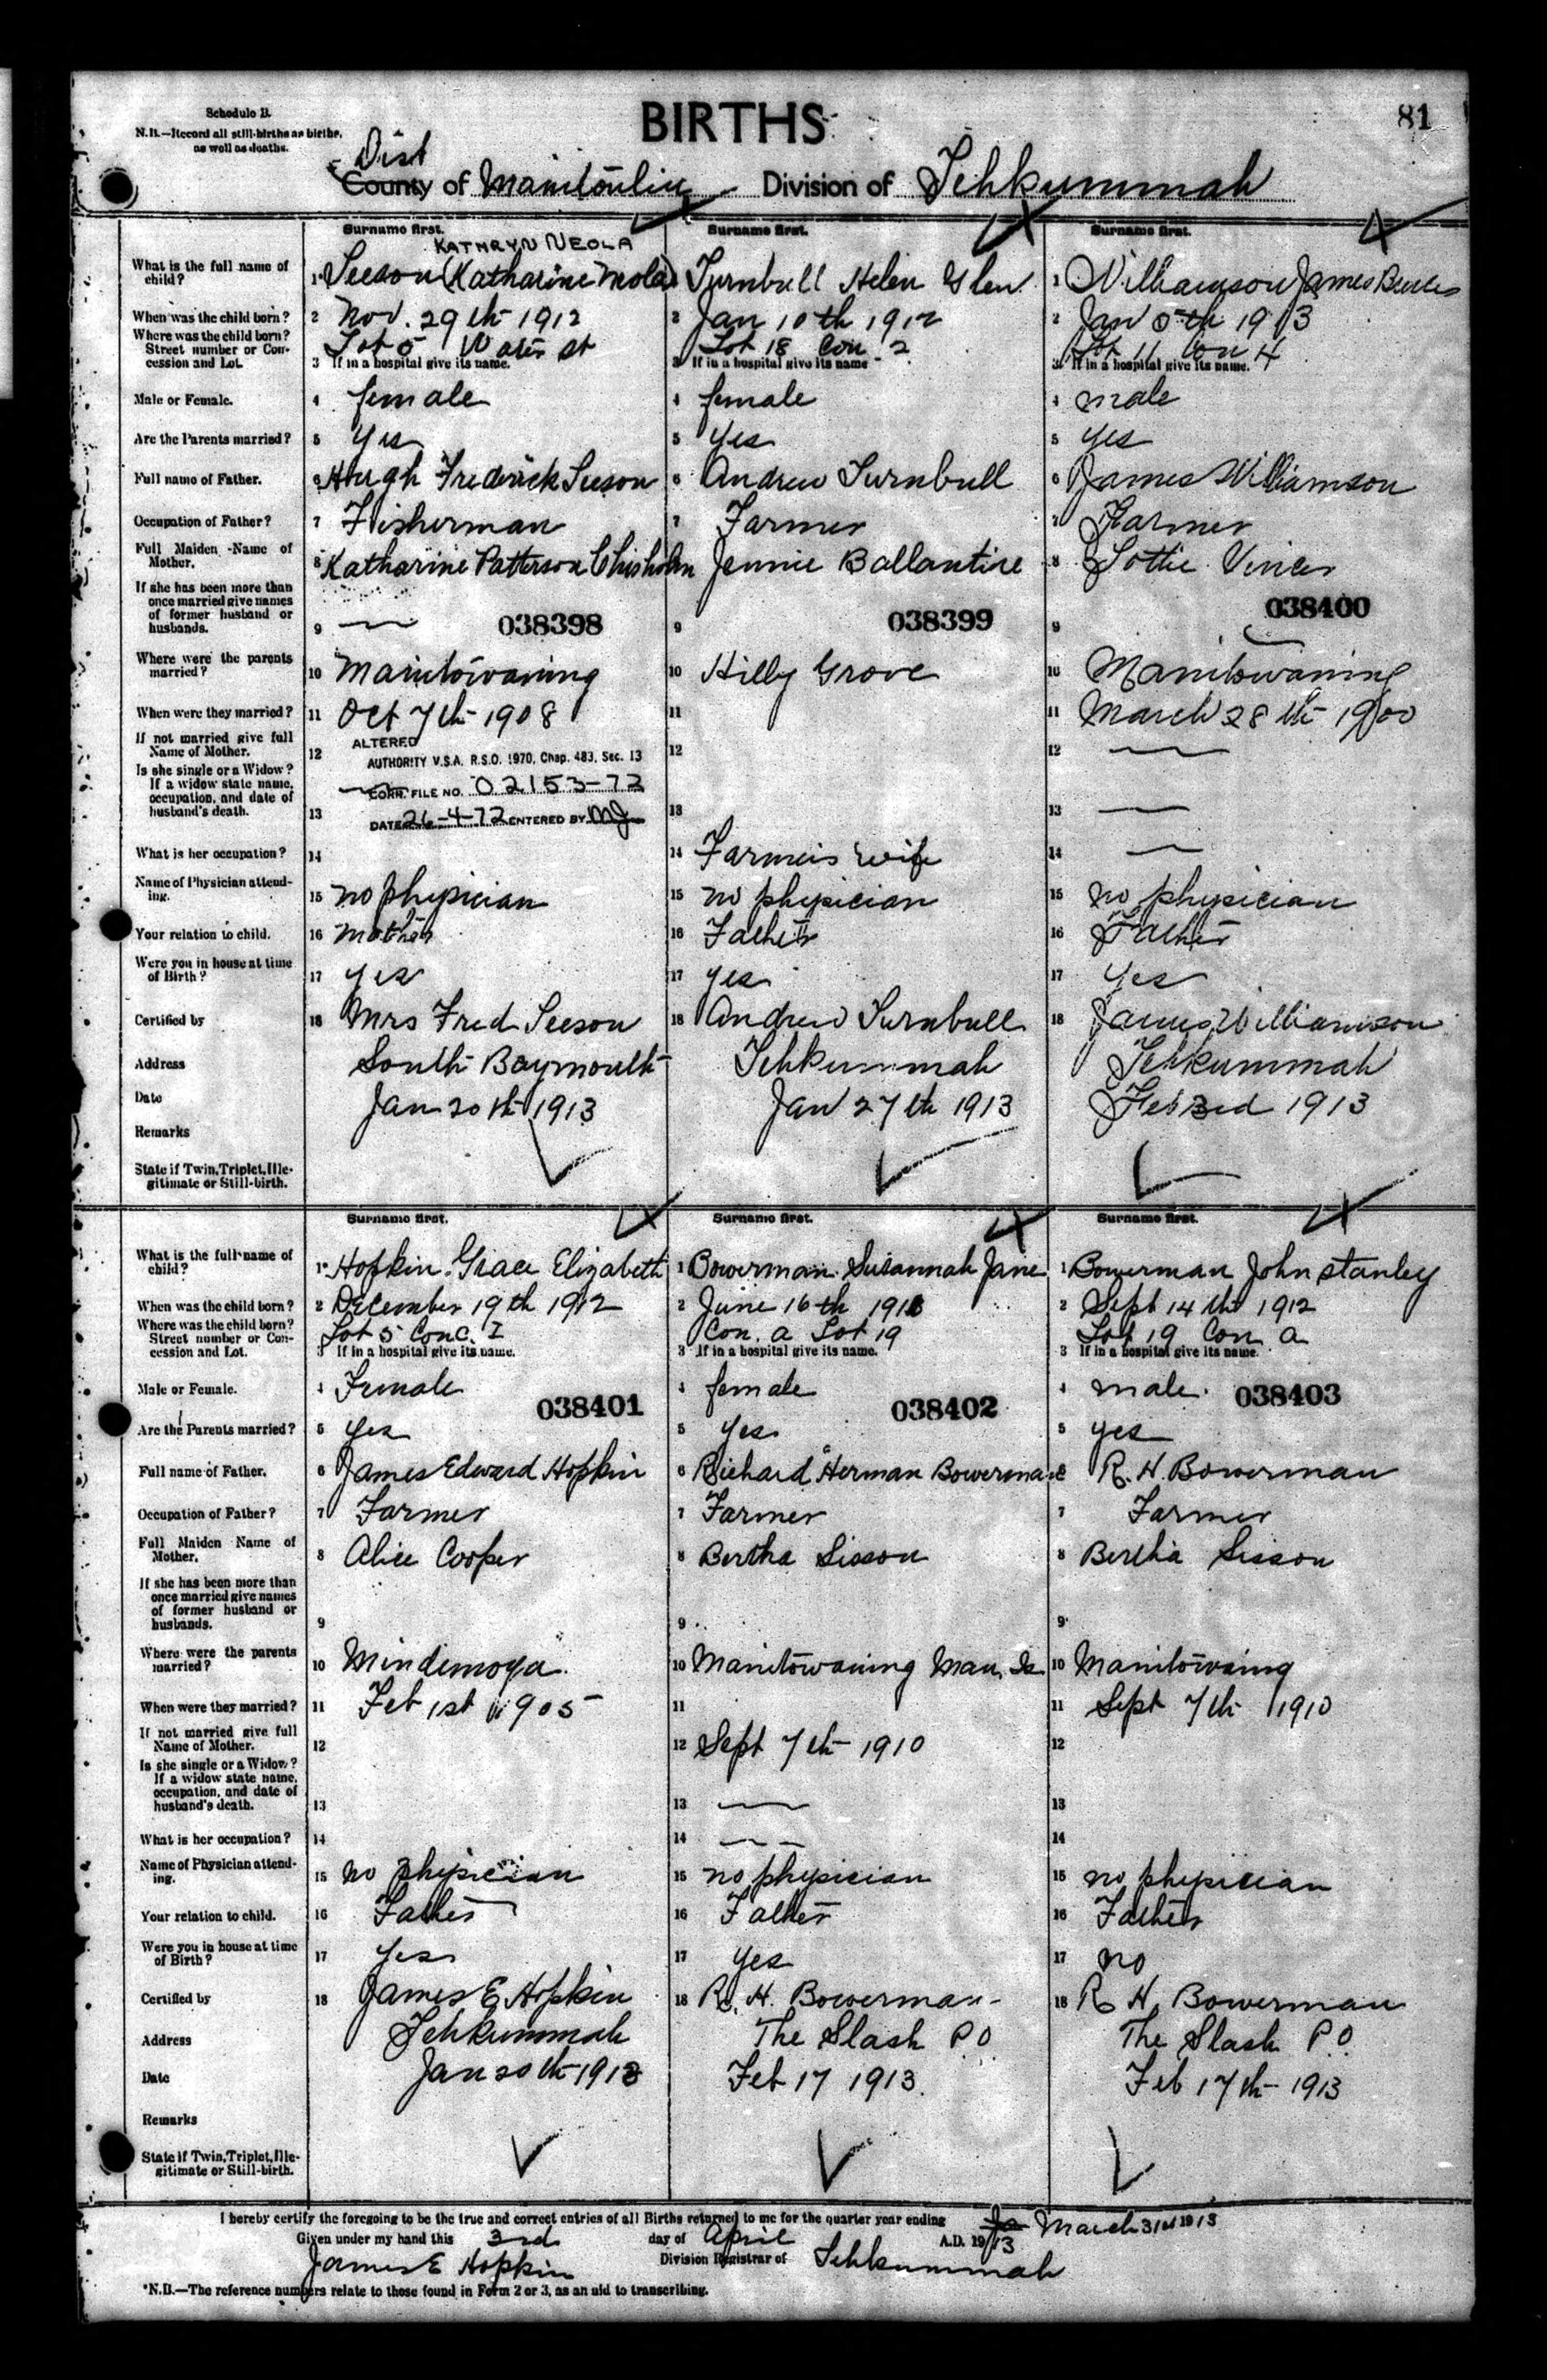 Schedule B.
N.B.—Record all still-births as births, as well as deaths.
BIRTHS
81
Dist
County of Manitoulin Division of Tehkummah
Surname first.
KATHRYN NEOLA
What is the full name of child?
1 Leeson (Katharine Neola)
When was the child born?
2 Nov. 29th 1912
Where was the child born? Street number or Concession and Lot.
Lot 5 Water St
3 If in a hospital give its name.
Male or Female.
4 female
Are the Parents married?
5 yes
Full name of Father.
6 Hugh Frederick Leeson
Occupation of Father?
7 Fisherman
Full Maiden Name of Mother.
8 Katharine Patterson Chisholm
If she has been more than once married give names of former husband or husbands.
9 —
038398
Where were the parents married?
10 Manitowaning
When were they married?
11 Oct 7th 1908
If not married give full Name of Mother.
12
ALTERED
AUTHORITY V.S.A. R.S.O. 1970, Chap. 483, Sec. 13
CORR. FILE NO. 02153-72
Is she single or a Widow? If a widow state name, occupation, and date of husband's death.
13
DATE 26-4-72 ENTERED BY MJ
What is her occupation?
14
Name of Physician attending.
15 no physician
Your relation to child.
16 Mother
Were you in house at time of Birth?
17 yes
Certified by
18 Mrs Fred Leeson
Address
South Baymouth
Date
Jan 20th 1913
Remarks
State if Twin, Triplet, Illegitimate or Still-birth.
Surname first.
1 Turnbull Helen Glen
2 Jan 10th 1912
Lot 18 Con 2
3 If in a hospital give its name
4 female
5 yes
6 Andrew Turnbull
7 Farmer
8 Jennie Ballantine
9
038399
10 Hilly Grove
11
12
13
14 Farmers wife
15 no physician
16 Father
17 yes
18 Andrew Turnbull
Tehkummah
Jan 27th 1913
Surname first.
1 Williamson James
2 Jan 5th 1913
Lot 11 Con 4
3 If in a hospital give its name.
4 male
5 yes
6 James Williamson
7 Farmer
8 Lottie Vincer
9
038400
10 Manitowaning
11 March 28th 1900
12 —
13 —
14 —
15 no physician
16 Father
17 yes
18 James Williamson
Tehkummah
Feb 3rd 1913
Surname first.
What is the full name of child?
1 Hopkin Grace Elizabeth
When was the child born?
2 December 19th 1912
Where was the child born? Street number or Concession and Lot.
Lot 5 Conc. I
3 If in a hospital give its name.
Male or Female.
4 Female
038401
Are the Parents married?
5 yes
Full name of Father.
6 James Edward Hopkin
Occupation of Father?
7 Farmer
Full Maiden Name of Mother.
8 Alice Cooper
If she has been more than once married give names of former husband or husbands.
9
Where were the parents married?
10 Mindemoya
When were they married?
11 Feb 1st 1905
If not married give full Name of Mother.
12
Is she single or a Widow? If a widow state name, occupation, and date of husband's death.
13
What is her occupation?
14
Name of Physician attending.
15 no physician
Your relation to child.
16 Father
Were you in house at time of Birth?
17 yes
Certified by
18 James E Hopkin
Address
Tehkummah
Date
Jan 20th 1913
Remarks
State if Twin, Triplet, Illegitimate or Still-birth.
Surname first.
1 Bowerman Susannah Jane
2 June 16th
Con. a Lot 19
3 If in a hospital give its name.
4 female
038402
5 yes
6 Richard Herman Bowerman
7 Farmer
8 Bertha Sisson
9
10 Manitowaning Man. Is
11
12 Sept 7th 1910
13 —
14 —
15 no physician
16 Father
17 yes
18 R. H. Bowerman
The Slash P.O
Feb 17 1913.
Surname first.
1 Bowerman John Stanley
2 Sept 14th 1912
Lot 19 Con a
3 If in a hospital give its name.
4 male
038403
5 yes
6 R. H. Bowerman
7 Farmer
8 Bertha Sisson
9
10 Manitowaing
11 Sept 7th 1910
12
13
14
15 no physician
16 Father
17 no
18 R H. Bowerman
The Slash P.O.
Feb 17th 1913
I hereby certify the foregoing to be the true and correct entries of all Births returned to me for the quarter year ending March 31st 1913
Given under my hand this 3rd day of April A.D. 1913
James E Hopkin Division Registrar of Tehkummah
*N.B.—The reference numbers relate to those found in Form 2 or 3, as an aid to transcribing.